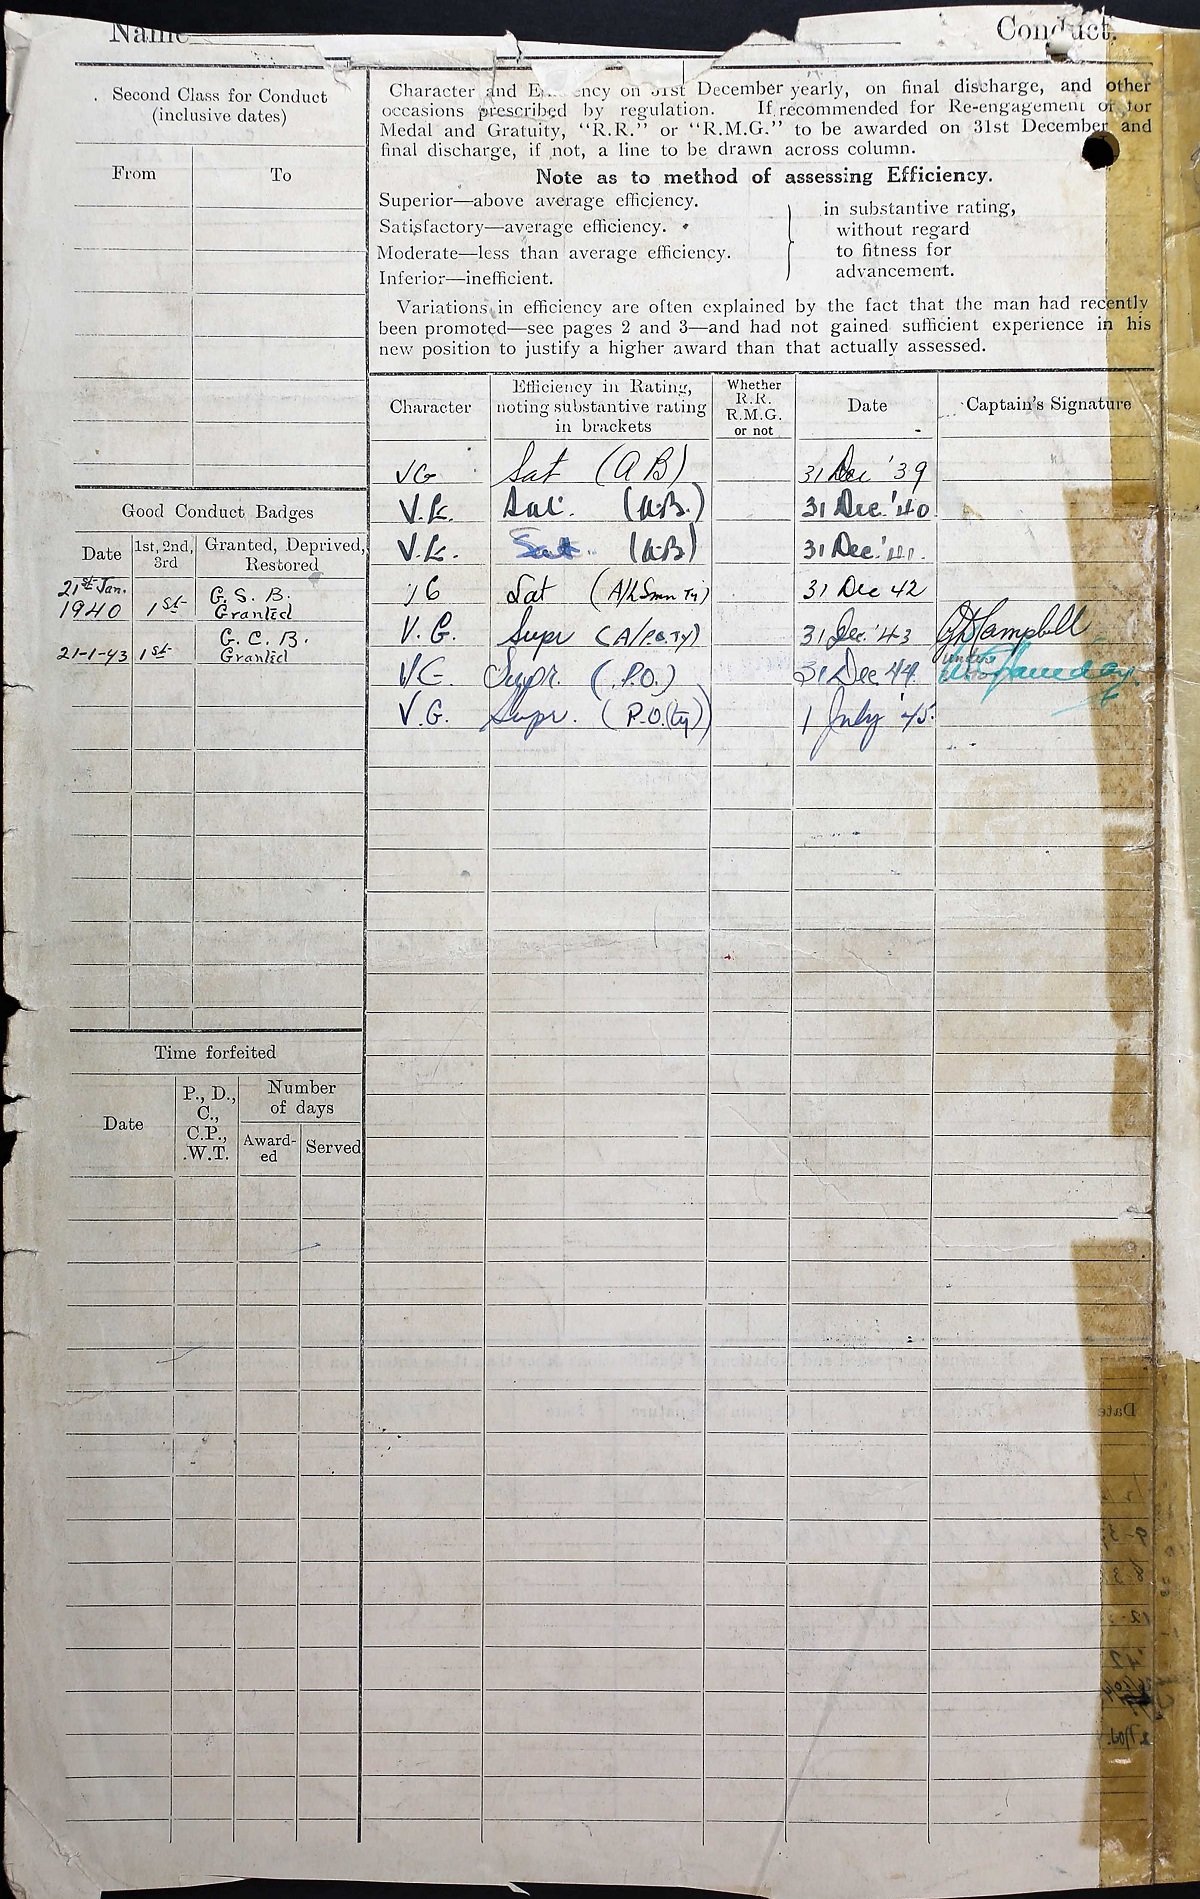 Name
Conduct.
Second Class for Conduct
(inclusive dates)
From
To
Character and Efficiency on 31st December yearly, on final discharge, and other
occasions prescribed by regulation. If recommended for Re-engagement or for
Medal and Gratuity, “R.R.” or “R.M.G.” to be awarded on 31st December and
final discharge, if not, a line to be drawn across column.
Note as to method of assessing Efficiency.
Superior—above average efficiency.
Satisfactory—average efficiency.
Moderate—less than average efficiency.
Inferior—inefficient.
in substantive rating,
without regard
to fitness for
advancement.
Variations in efficiency are often explained by the fact that the man had recently
been promoted—see pages 2 and 3—and had not gained sufficient experience in his
new position to justify a higher award than that actually assessed.
Character
Efficiency in Rating,
noting substantive rating
in brackets
Whether
R.R.
R.M.G.
or not
Date
Captain's Signature
VG Sat (AB) 31 Dec '39
V.G. Sat. (A.B.) 31 Dec. '40
V.G. Sat. (A.B) 31 Dec. '41.
VG Sat (A/L Smn Ty) 31 Dec 42
V.G. Supr (A/P.O. Ty) 31 Dec. '43 Campbell
VG. Supr. (P.O.) 31 Dec 44
V.G. Supr. (P.O.(ty)) 1 July '45.
Good Conduct Badges
Date
1st, 2nd,
3rd
Granted, Deprived,
Restored
21st Jan.
1940 1st G. S. B.
Granted
21-1-43 1st G. C. B.
Granted
Time forfeited
Date
P., D.,
C.,
C.P.,
W.T.
Number
of days
Award-
ed
Served